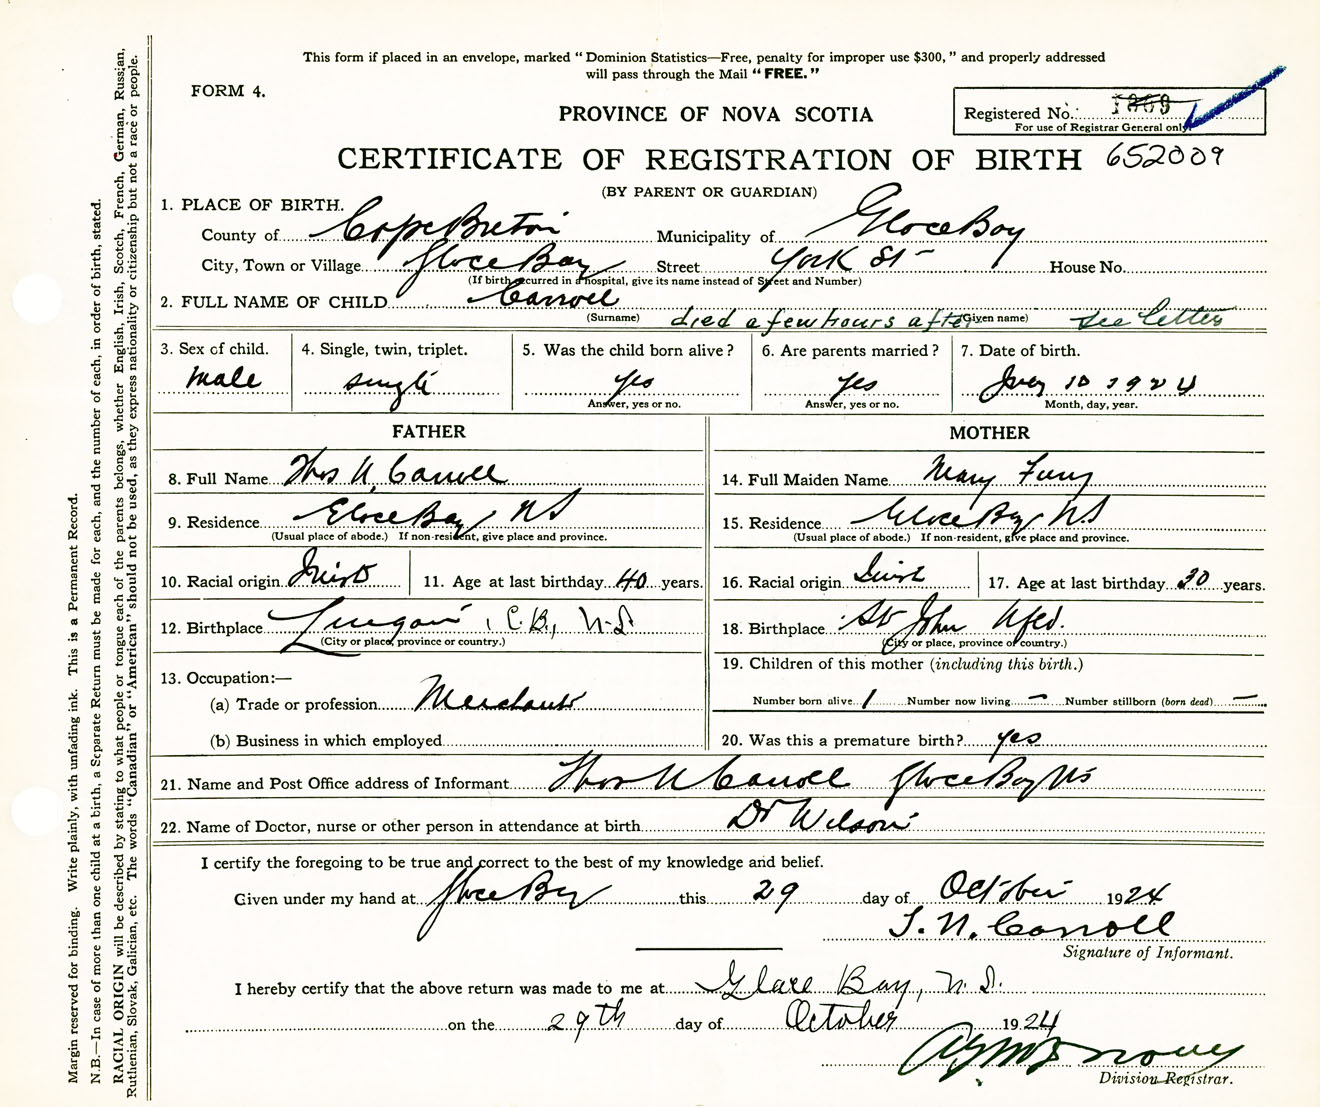 This form if placed in an envelope, marked "Dominion Statistics—Free, penalty for improper use $300," and properly addressed
will pass through the Mail "FREE."
FORM 4.
PROVINCE OF NOVA SCOTIA
Registered No. 1869
For use of Registrar General only
CERTIFICATE OF REGISTRATION OF BIRTH 652009
(BY PARENT OR GUARDIAN)
1. PLACE OF BIRTH.
County of Cape Breton Municipality of Glace Bay
City, Town or Village Glace Bay Street York St House No.
(If birth occurred in a hospital, give its name instead of Street and Number)
2. FULL NAME OF CHILD Carroll
(Surname) died a few hours after (Given name) see letter
3. Sex of child. 4. Single, twin, triplet. 5. Was the child born alive? 6. Are parents married? 7. Date of birth.
male single yes yes 10 1924
Answer, yes or no. Answer, yes or no. Month, day, year.
FATHER MOTHER
8. Full Name Thos N. Carroll 14. Full Maiden Name Mary
9. Residence Glace Bay NS 15. Residence Glace Bay NS
(Usual place of abode.) If non-resident, give place and province. (Usual place of abode.) If non-resident, give place and province.
10. Racial origin Irish 11. Age at last birthday 40 years. 16. Racial origin Irish 17. Age at last birthday 30 years.
12. Birthplace Lingan, C.B., N.S. 18. Birthplace St John Nfld.
(City or place, province or country.) (City or place, province or country.)
13. Occupation:— 19. Children of this mother (including this birth.)
(a) Trade or profession Merchant Number born alive 1 Number now living — Number stillborn (born dead) —
(b) Business in which employed 20. Was this a premature birth? yes
21. Name and Post Office address of Informant Thos N Carroll Glace Bay NS
22. Name of Doctor, nurse or other person in attendance at birth Dr Wilson
I certify the foregoing to be true and correct to the best of my knowledge and belief.
Given under my hand at Glace Bay this 29 day of October 1924
T. N. Carroll
Signature of Informant.
I hereby certify that the above return was made to me at Glace Bay, N.S.
on the 29th day of October 1924
Division Registrar.
Margin reserved for binding. Write plainly, with unfading ink. This is a Permanent Record.
N.B.—In case of more than one child at a birth, a Separate Return must be made for each, and the number of each, in order of birth, stated.
RACIAL ORIGIN will be described by stating to what people or tongue each of the parents belongs, whether English, Irish, Scotch, French, German, Russian,
Ruthenian, Slovak, Galician, etc. The words "Canadian" or "American" should not be used, as they express nationality or citizenship but not a race or people.